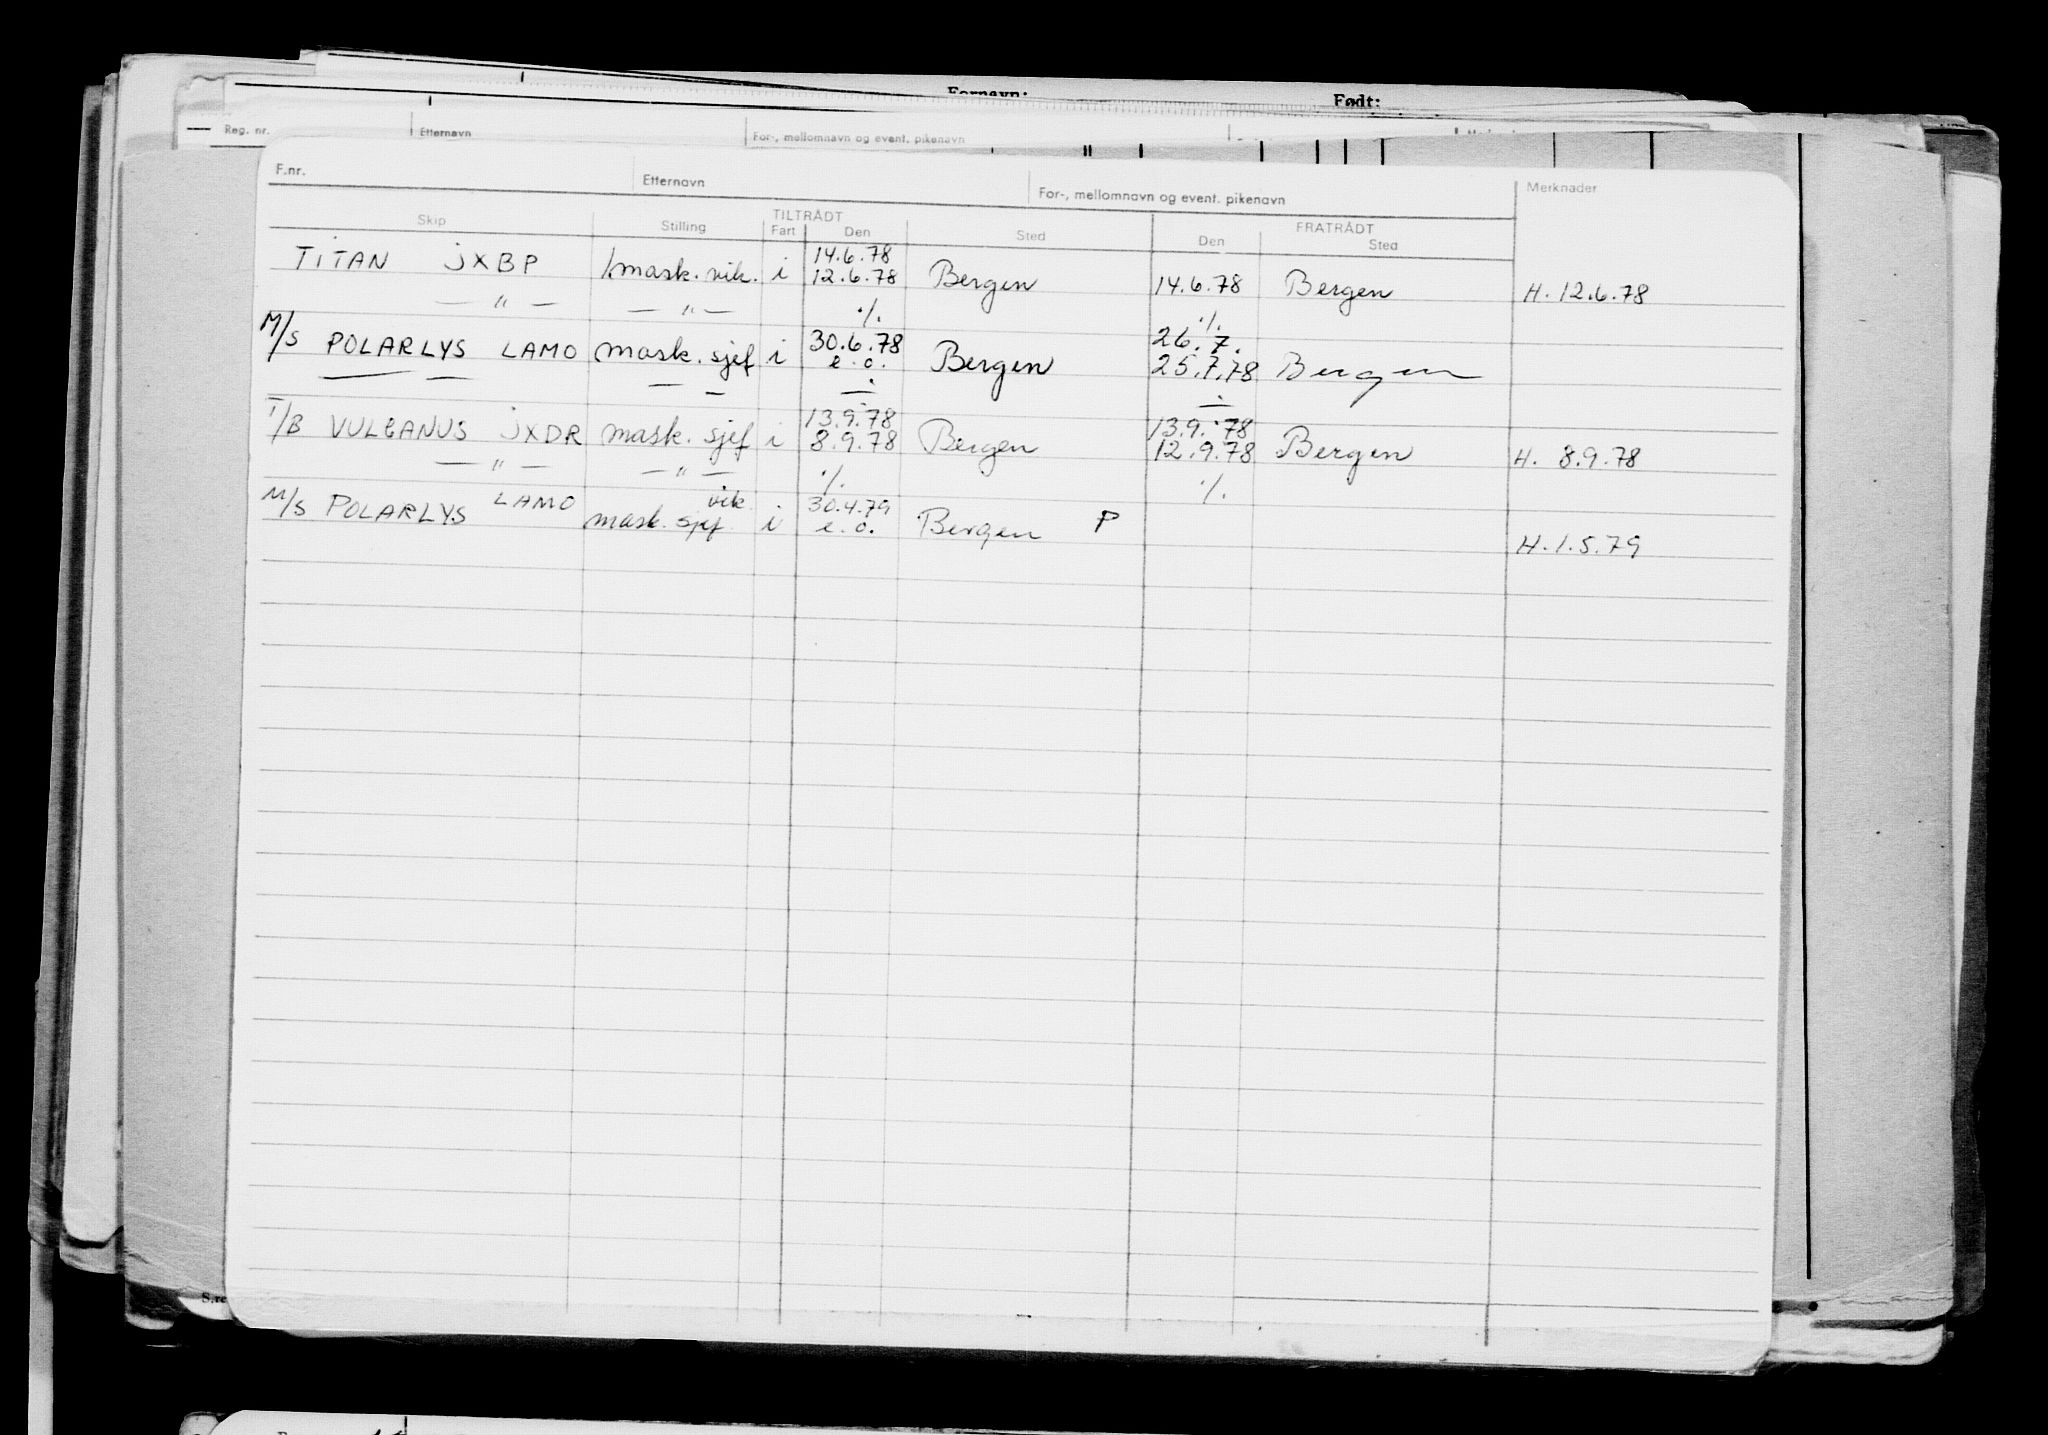 Fornavn: Født:
Reg. nr. Etternavn For-, mellomnavn og event. pikenavn
F.nr. Etternavn For-, mellomnavn og event. pikenavn Merknader
TILTRÅDT FRATRÅDT
Skip Stilling Fart Den Sted Den Sted
14.6.78
TITAN JXBP 1mask. vik. i 12.6.78 Bergen 14.6.78 Bergen H. 12.6.78
— " — — " — ./. ./.
30.6.78 26.7.
M/S POLARLYS LAMO mask. sjef i e.o. Bergen 25.7.78 Bergen
— — — — ÷ ÷
13.9.78 13.9.78
T/B VULCANUS JXDR mask. sjef i 8.9.78 Bergen 12.9.78 Bergen H. 8.9.78
— " — — " — ./. ./.
LAMO vik. 30.4.79
M/S POLARLYS mask. sjef i e.o. Bergen P H. 1.5.79